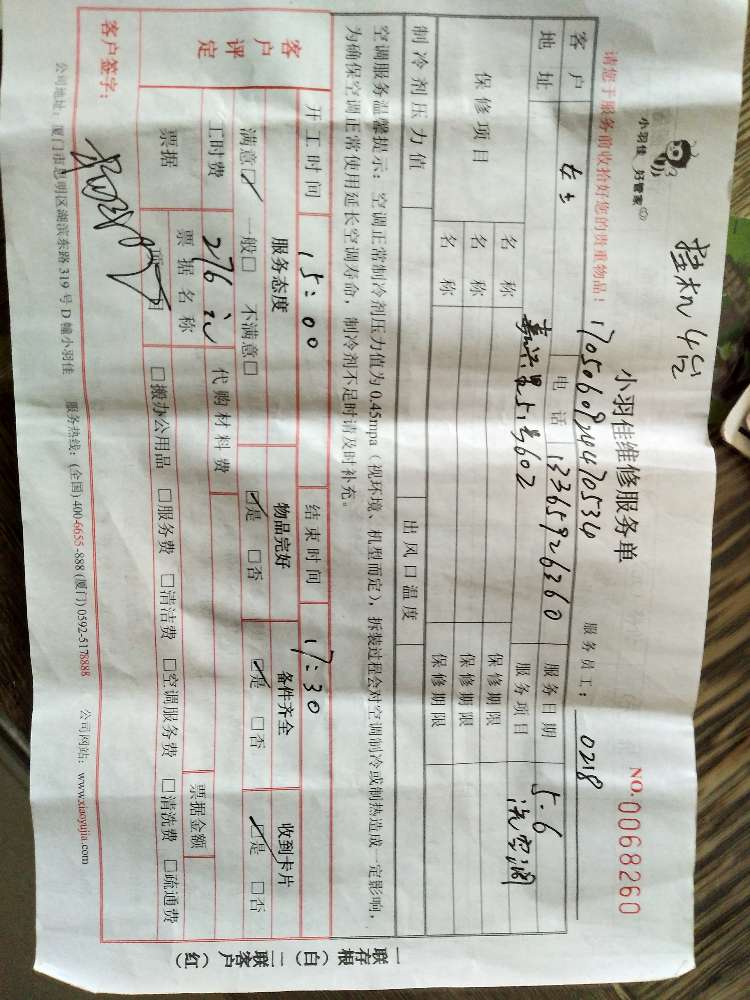 小羽佳 好管家
挂机4台
小羽佳维修服务单
NO.0068260
请您于服务前收拾好您的贵重物品!
17050609244470534
服务员工: 0218
客户 女士 电话 13365926360 服务日期 5.6
地址 嘉兴里51号602 服务项目 洗空调
保修项目 名称 保修期限
名称 保修期限
名称 保修期限
制冷剂压力值 出风口温度
空调服务温馨提示:空调正常制冷剂压力值为0.45mpa(视环境、机型而定),拆装过程会对空调制冷或制热造成一定影响,
为确保空调正常使用延长空调寿命,制冷剂不足时请及时补充。
开工时间 15:00 结束时间 17:30
客户评定 服务态度 物品完好 备件齐全 收到卡片
满意☑ 一般□ 不满意□ ☑是 □否 ☑是 □否 ☑是 □否
工时费 276元 代购材料费
票据 票据名称 票据金额
□搬办公用品 □服务费 □清洁费 □空调服务费 □清洗费 □疏通费
客户签字:
公司地址:厦门市思明区湖滨东路319号D幢小羽佳 服务热线:(全国)400-6655-888 (厦门)0592-5178888 公司网站:www.xiaoyujia.com
一联存根(白) 二联客户(红)